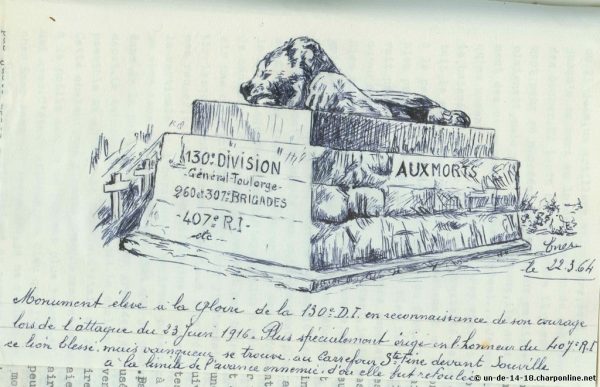 130e DIVISION
-Général-Toulorge-
260 et 307e BRIGADES
-407e R.I-
etc
AUX MORTS
le 22.3.64
Monument élevé a la Gloire de la 130e D.I. en reconnaissance de son courage
lors de l'attaque du 23 Juin 1916. Plus spécialement érigé en l'honneur du 407e R.I
ce lion blessé, mais vainqueur se trouve au carrefour Ste Fine devant Souville
a la limite de l'avance ennemie, d'où elle fut refoulée
© un-de-14-18.charponline.net